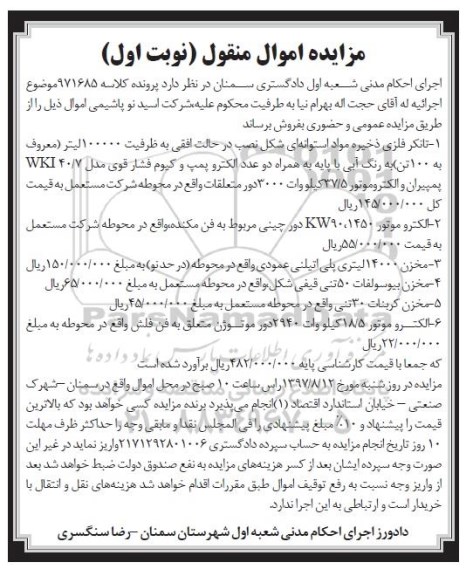 مزایده اموال منقول (نوبت اول)
اجرای احکام مدنی شعبه اول دادگستری سمنان در نظر دارد پرونده کلاسه ۹۷۱۶۸۵موضوع
اجرائیه له آقای حجت اله بهرام نیا به طرفیت محکوم علیه،شرکت اسید نو پاشیمی اموال ذیل را از
طریق مزایده عمومی و حضوری بفروش برساند
۱-تانکر فلزی ذخیره مواد استوانه‌ای شکل نصب در حالت افقی به ظرفیت ۱۰۰۰۰۰لیتر (معروف
به ۱۰۰ تن)به رنگ آبی با پایه به همراه دو عدد الکترو پمپ و کیوم فشار قوی مدل WKI ۴۰/۷
پمپیران و الکتروموتور ۳۷/۵کیلو وات ۳۰۰۰دور متعلقات واقع در محوطه شرکت مستعمل به قیمت
کل ۱۴۵/۰۰۰/۰۰۰ریال
۲-الکترو موتور ۱۴۵۰،KW۹۰ دور چینی مربوط به فن مکنده،واقع در محوطه شرکت مستعمل
به قیمت ۵۵/۰۰۰/۰۰۰ریال
۳-مخزن ۱۴۰۰۰لیتری پلی اتیلنی عمودی واقع در محوطه (در حد نو) به مبلغ ۱۵۰/۰۰۰/۰۰۰ریال
۴-مخزن بیوسولفات ۵۰تنی قیفی شکل واقع در محوطه مستعمل به مبلغ ۶۵/۰۰۰/۰۰۰ریال
۵-مخزن کربنات ۳۰تنی واقع در محوطه مستعمل به مبلغ ۴۵/۰۰۰/۰۰۰ریال
۶-الکترو موتور ۱۸/۵کیلو وات ۲۹۴۰دور موتوژن متعلق به فن فلش واقع در محوطه به مبلغ
۲۲/۰۰۰/۰۰۰ریال
که جمعا با قیمت کارشناسی پایه ۴۸۲/۰۰۰/۰۰۰ریال برآورد شده است
مزایده در روز شنبه مورخ ۱۳۹۷/۸/۱۲راس ساعت ۱۰ صبح در محل اموال واقع در سمنان –شهرک
صنعتی – خیابان استاندارد اقتصاد (۱)انجام می‌پذیرد برنده مزایده کسی خواهد بود که بالاترین
قیمت را پیشنهاد و ۱۰٪ مبلغ پیشنهادی را فی المجلس نقدا و مابقی وجه را حداکثر ظرف مهلت
۱۰ روز تاریخ انجام مزایده به حساب سپرده دادگستری ۲۱۷۱۲۹۲۸۰۱۰۰۶واریز نماید در غیر این
صورت وجه سپرده ایشان بعد از کسر هزینه‌های مزایده به نفع صندوق دولت ضبط خواهد شد بعد
از واریز وجه نسبت به رفع توقیف اموال طبق مقررات اقدام خواهد شد هزینه‌های نقل و انتقال با
خریدار است و ارتباطی به این اجرا ندارد.
دادورز اجرای احکام مدنی شعبه اول شهرستان سمنان –رضا سنگسری